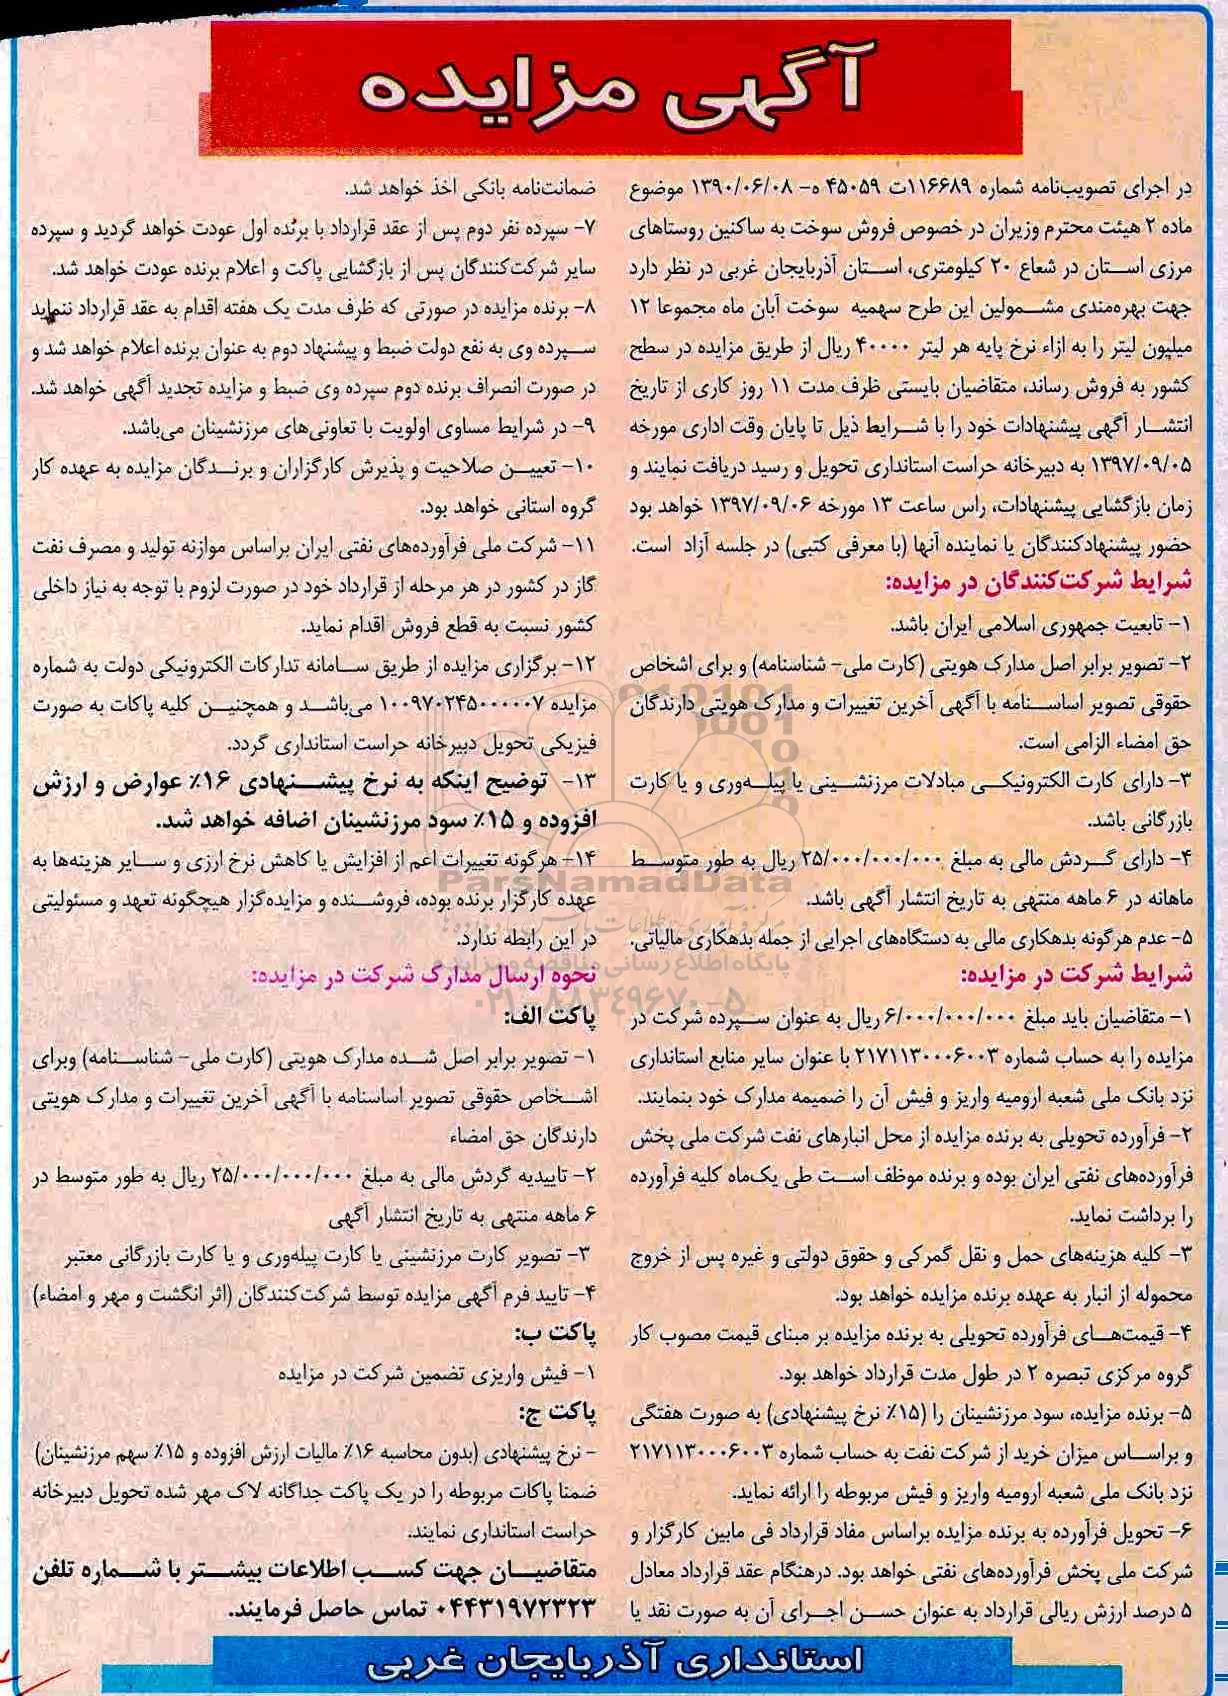 آگهی مزایده
در اجرای تصویب‌نامه شماره ۱۱۶۶۸۹ت ۴۵۰۵۹ ه- ۱۳۹۰/۰۶/۰۸ موضوع
ماده ۲ هیئت محترم وزیران در خصوص فروش سوخت به ساکنین روستاهای
مرزی استان در شعاع ۲۰ کیلومتری، استان آذربایجان غربی در نظر دارد
جهت بهره‌مندی مشمولین این طرح سهمیه سوخت آبان ماه مجموعا ۱۲
میلیون لیتر را به ازاء نرخ پایه هر لیتر ۴۰۰۰۰ ریال از طریق مزایده در سطح
کشور به فروش رساند، متقاضیان بایستی ظرف مدت ۱۱ روز کاری از تاریخ
انتشار آگهی پیشنهادات خود را با شرایط ذیل تا پایان وقت اداری مورخه
۱۳۹۷/۰۹/۰۵ به دبیرخانه حراست استانداری تحویل و رسید دریافت نمایند و
زمان بازگشایی پیشنهادات، راس ساعت ۱۳ مورخه ۱۳۹۷/۰۹/۰۶ خواهد بود
حضور پیشنهادکنندگان یا نماینده آنها (با معرفی کتبی) در جلسه آزاد است.
شرایط شرکت‌کنندگان در مزایده:
۱- تابعیت جمهوری اسلامی ایران باشد.
۲- تصویر برابر اصل مدارک هویتی (کارت ملی- شناسنامه) و برای اشخاص
حقوقی تصویر اساسنامه با آگهی آخرین تغییرات و مدارک هویتی دارندگان
حق امضاء الزامی است.
۳- دارای کارت الکترونیکی مبادلات مرزنشینی یا پیله‌وری و یا کارت
بازرگانی باشد.
۴- دارای گردش مالی به مبلغ ۲۵/۰۰۰/۰۰۰/۰۰۰ ریال به طور متوسط
ماهانه در ۶ ماهه منتهی به تاریخ انتشار آگهی باشد.
۵- عدم هرگونه بدهکاری مالی به دستگاه‌های اجرایی از جمله بدهکاری مالیاتی.
شرایط شرکت در مزایده:
۱- متقاضیان باید مبلغ ۶/۰۰۰/۰۰۰/۰۰۰ ریال به عنوان سپرده شرکت در
مزایده را به حساب شماره ۲۱۷۱۱۳۰۰۰۶۰۰۳ با عنوان سایر منابع استانداری
نزد بانک ملی شعبه ارومیه واریز و فیش آن را ضمیمه مدارک خود بنمایند.
۲- فرآورده تحویلی به برنده مزایده از محل انبارهای نفت شرکت ملی پخش
فرآورده‌های نفتی ایران بوده و برنده موظف است طی یک‌ماه کلیه فرآورده
را برداشت نماید.
۳- کلیه هزینه‌های حمل و نقل گمرکی و حقوق دولتی و غیره پس از خروج
محموله از انبار به عهده برنده مزایده خواهد بود.
۴- قیمت‌های فرآورده تحویلی به برنده مزایده بر مبنای قیمت مصوب کار
گروه مرکزی تبصره ۲ در طول مدت قرارداد خواهد بود.
۵- برنده مزایده، سود مرزنشینان را (۱۵٪ نرخ پیشنهادی) به صورت هفتگی
و براساس میزان خرید از شرکت نفت به حساب شماره ۲۱۷۱۱۳۰۰۰۶۰۰۳
نزد بانک ملی شعبه ارومیه واریز و فیش مربوطه را ارائه نماید.
۶- تحویل فرآورده به برنده مزایده براساس مفاد قرارداد فی مابین کارگزار و
شرکت ملی پخش فرآورده‌های نفتی خواهد بود. درهنگام عقد قرارداد معادل
۵ درصد ارزش ریالی قرارداد به عنوان حسن اجرای آن به صورت نقد یا
ضمانت‌نامه بانکی اخذ خواهد شد.
۷- سپرده نفر دوم پس از عقد قرارداد با برنده اول عودت خواهد گردید و سپرده
سایر شرکت‌کنندگان پس از بازگشایی پاکت و اعلام برنده عودت خواهد شد.
۸- برنده مزایده در صورتی که ظرف مدت یک هفته اقدام به عقد قرارداد ننماید
سپرده وی به نفع دولت ضبط و پیشنهاد دوم به عنوان برنده اعلام خواهد شد و
در صورت انصراف برنده دوم سپرده وی ضبط و مزایده تجدید آگهی خواهد شد.
۹- در شرایط مساوی اولویت با تعاونی‌های مرزنشینان می‌باشد.
۱۰- تعیین صلاحیت و پذیرش کارگزاران و برندگان مزایده به عهده کار
گروه استانی خواهد بود.
۱۱- شرکت ملی فرآورده‌های نفتی ایران براساس موازنه تولید و مصرف نفت
گاز در کشور در هر مرحله از قرارداد خود در صورت لزوم با توجه به نیاز داخلی
کشور نسبت به قطع فروش اقدام نماید.
۱۲- برگزاری مزایده از طریق سامانه تدارکات الکترونیکی دولت به شماره
مزایده ۱۰۰۹۷۰۲۴۵۰۰۰۰۰۷ می‌باشد و همچنین کلیه پاکات به صورت
فیزیکی تحویل دبیرخانه حراست استانداری گردد.
۱۳- توضیح اینکه به نرخ پیشنهادی ۱۶٪ عوارض و ارزش
افزوده و ۱۵٪ سود مرزنشینان اضافه خواهد شد.
۱۴- هرگونه تغییرات اعم از افزایش یا کاهش نرخ ارزی و سایر هزینه‌ها به
عهده کارگزار برنده بوده، فروشنده و مزایده‌گزار هیچگونه تعهد و مسئولیتی
در این رابطه ندارد.
نحوه ارسال مدارک شرکت در مزایده:
پاکت الف:
۱- تصویر برابر اصل شده مدارک هویتی (کارت ملی- شناسنامه) وبرای
اشخاص حقوقی تصویر اساسنامه با آگهی آخرین تغییرات و مدارک هویتی
دارندگان حق امضاء
۲- تاییدیه گردش مالی به مبلغ ۲۵/۰۰۰/۰۰۰/۰۰۰ ریال به طور متوسط در
۶ ماهه منتهی به تاریخ انتشار آگهی
۳- تصویر کارت مرزنشینی یا کارت پیله‌وری و یا کارت بازرگانی معتبر
۴- تایید فرم آگهی مزایده توسط شرکت‌کنندگان (اثر انگشت و مهر و امضاء)
پاکت ب:
۱- فیش واریزی تضمین شرکت در مزایده
پاکت ج:
- نرخ پیشنهادی (بدون محاسبه ۱۶٪ مالیات ارزش افزوده و ۱۵٪ سهم مرزنشینان)
ضمنا پاکات مربوطه را در یک پاکت جداگانه لاک مهر شده تحویل دبیرخانه
حراست استانداری نمایند.
متقاضیان جهت کسب اطلاعات بیشتر با شماره تلفن
۰۴۴۳۱۹۷۲۳۲۳ تماس حاصل فرمایند.
استانداری آذربایجان غربی
ParsNamadData
پایگاه اطلاع رسانی مناقصه و مزایده
۰۲۱-۸۸۳۴۹۶۷۰-۵